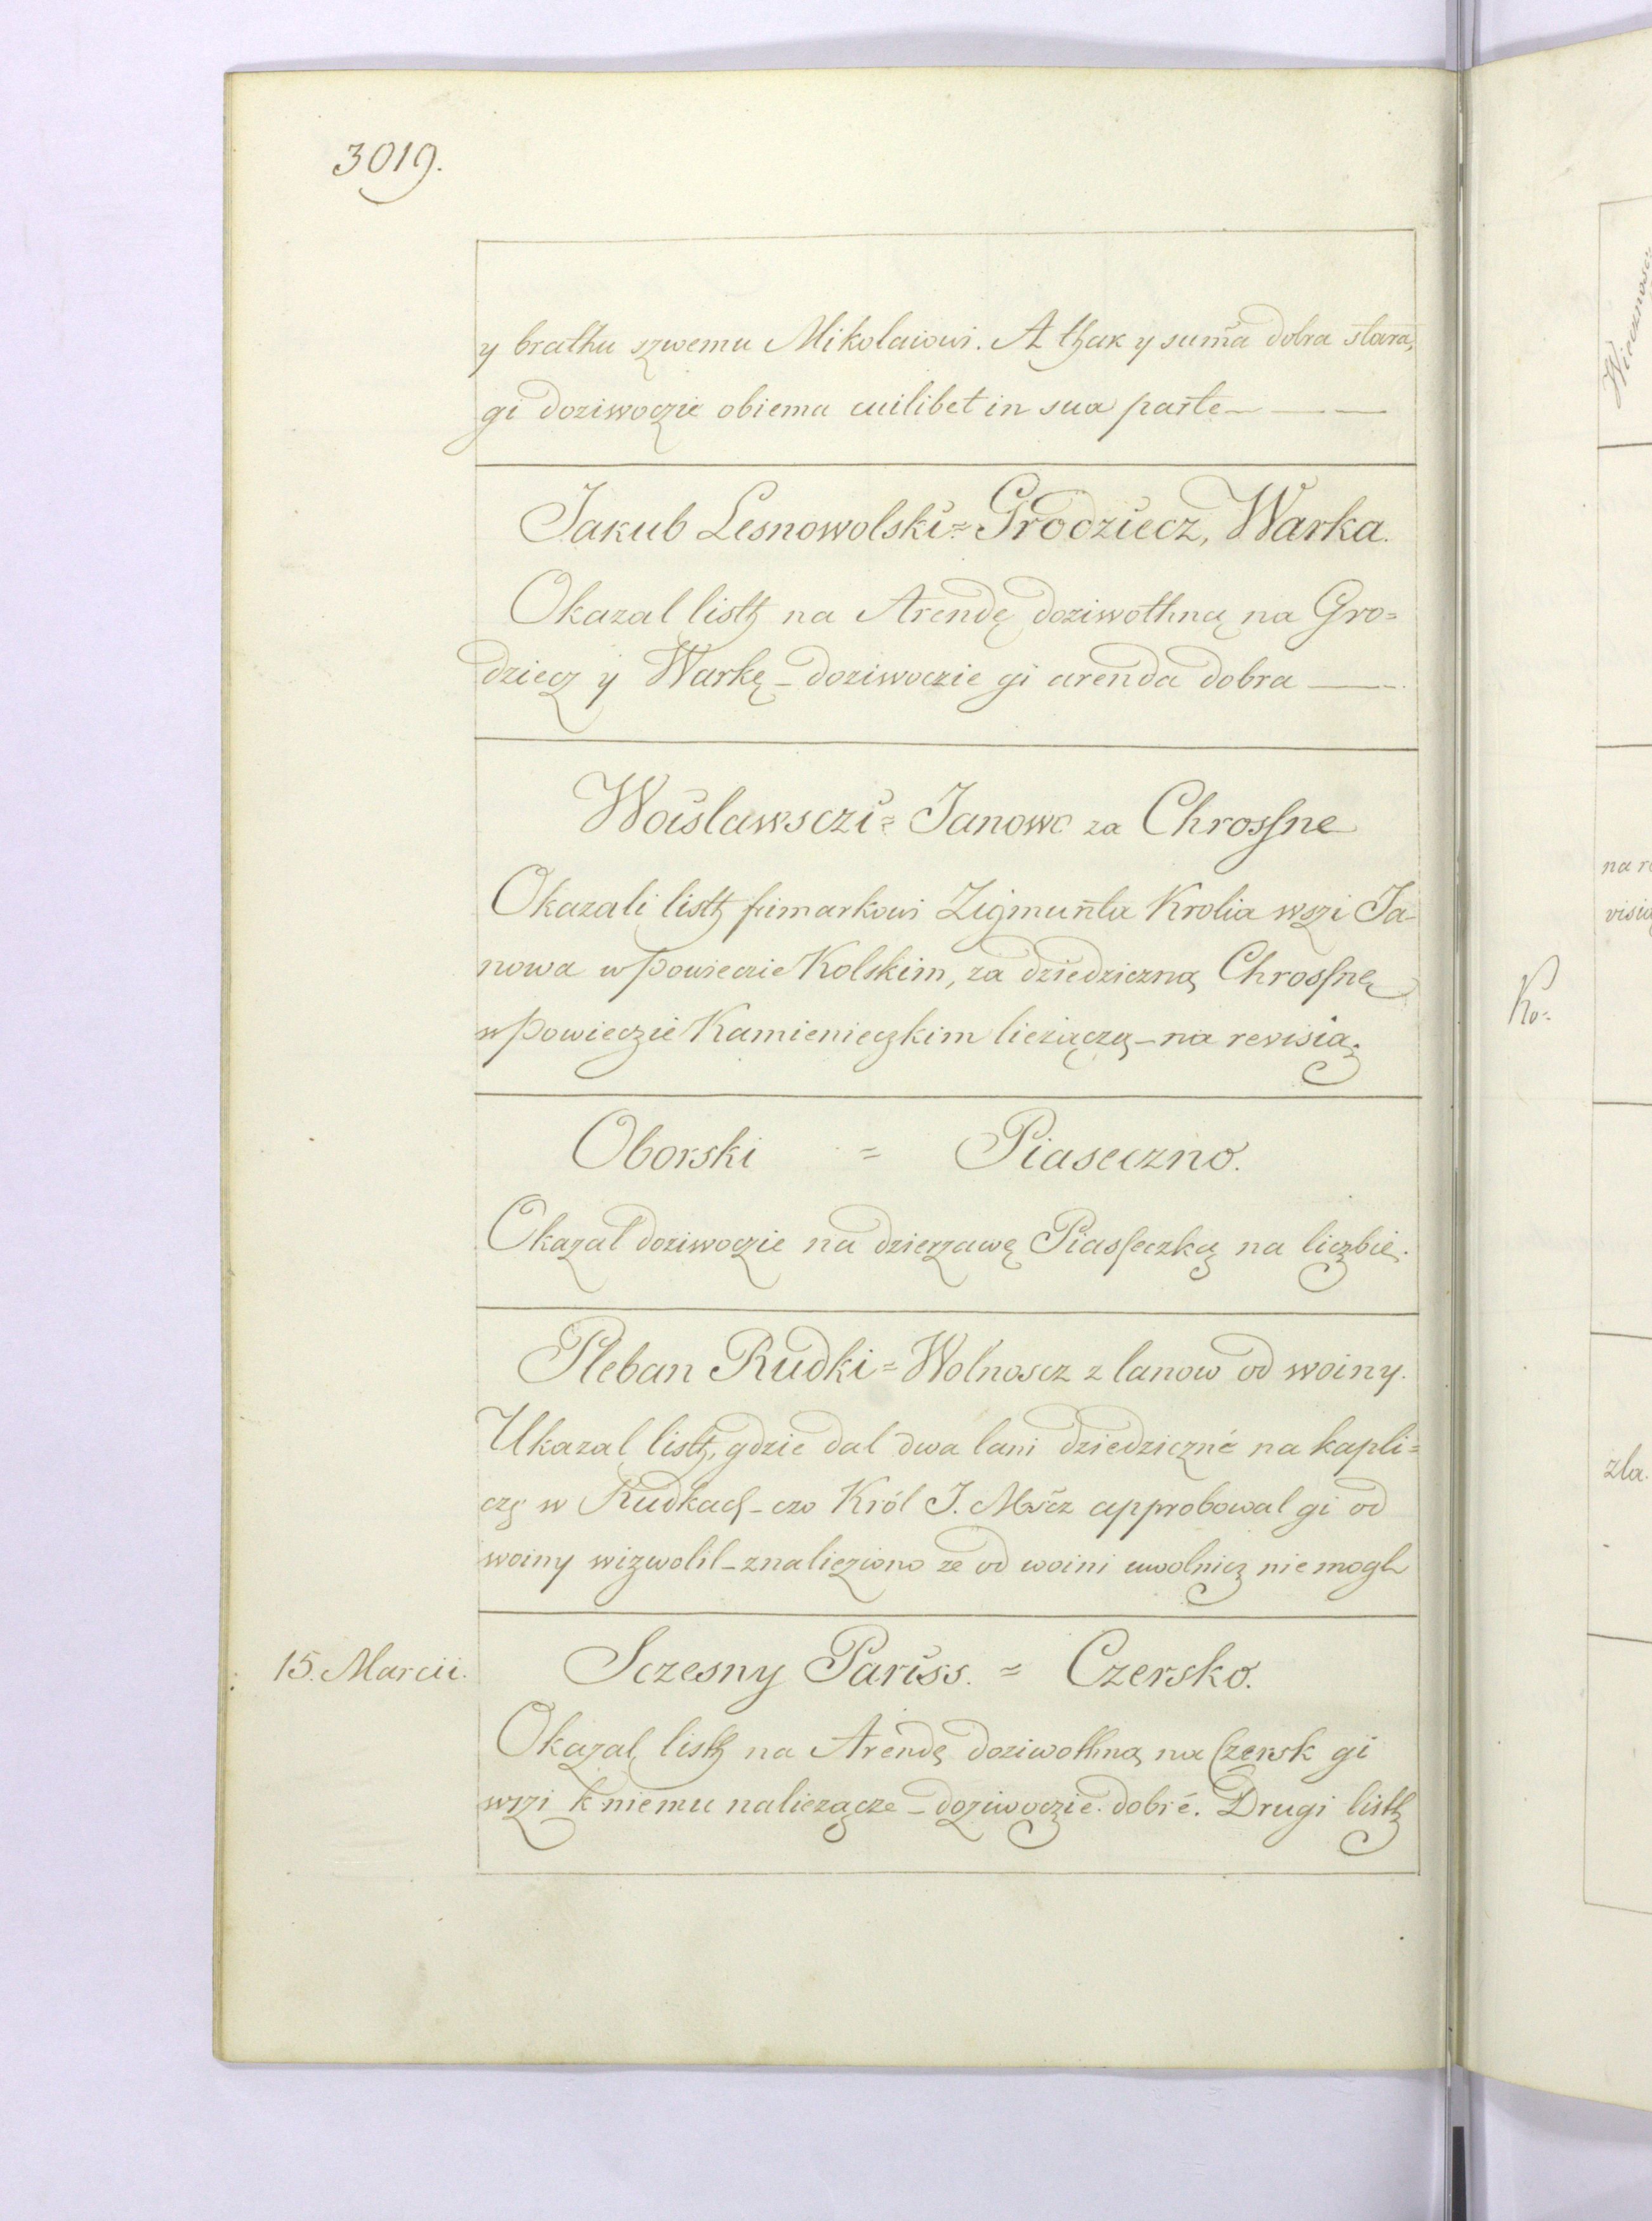 3019.
y brathu szwemu Mikolaiowi. A thak y suma dobra stara,
gi doziwoczie obiema cuilibet in sua parte
Jakub Lesnowolski = Grodziecz, Warka.
Okazal listh na Arendę doziwothną na Gro=
dziecz y Warkę _ doziwoczie gi arenda dobra
Woislawsczi = Janowo za Chrossne
Okazali listh frimarkowi Zigmunta Krolia wszi Ja-
nowa w powieczie Kolskim, za dziedziczną Chrossnę
w powieczie Kamienieczkim lieżączą _ na revisią.
Oborski = Piaseczno.
Okazal doziwoczie na dzierzawę Piasseczką na liczbie.
Pleban Rudki = Wolnoscz z lanow od woiny.
Ukazal listh, gdzie dal dwa lani dziedziczné na kapli=
czę w Rudkach _ czo Król J. Mscz approbowal gi od
woiny wizwolil _ znalieziono ze od woini uwolnicz nie mogl
15. Marcii.
Sczesny Pariss. = Czersko.
Okazal listh na Arendę doziwothną na Czersk gi
wszi k niemu naliezącze _ doziwoczie dobré. Drugi listh
Ko:
na r
zla.